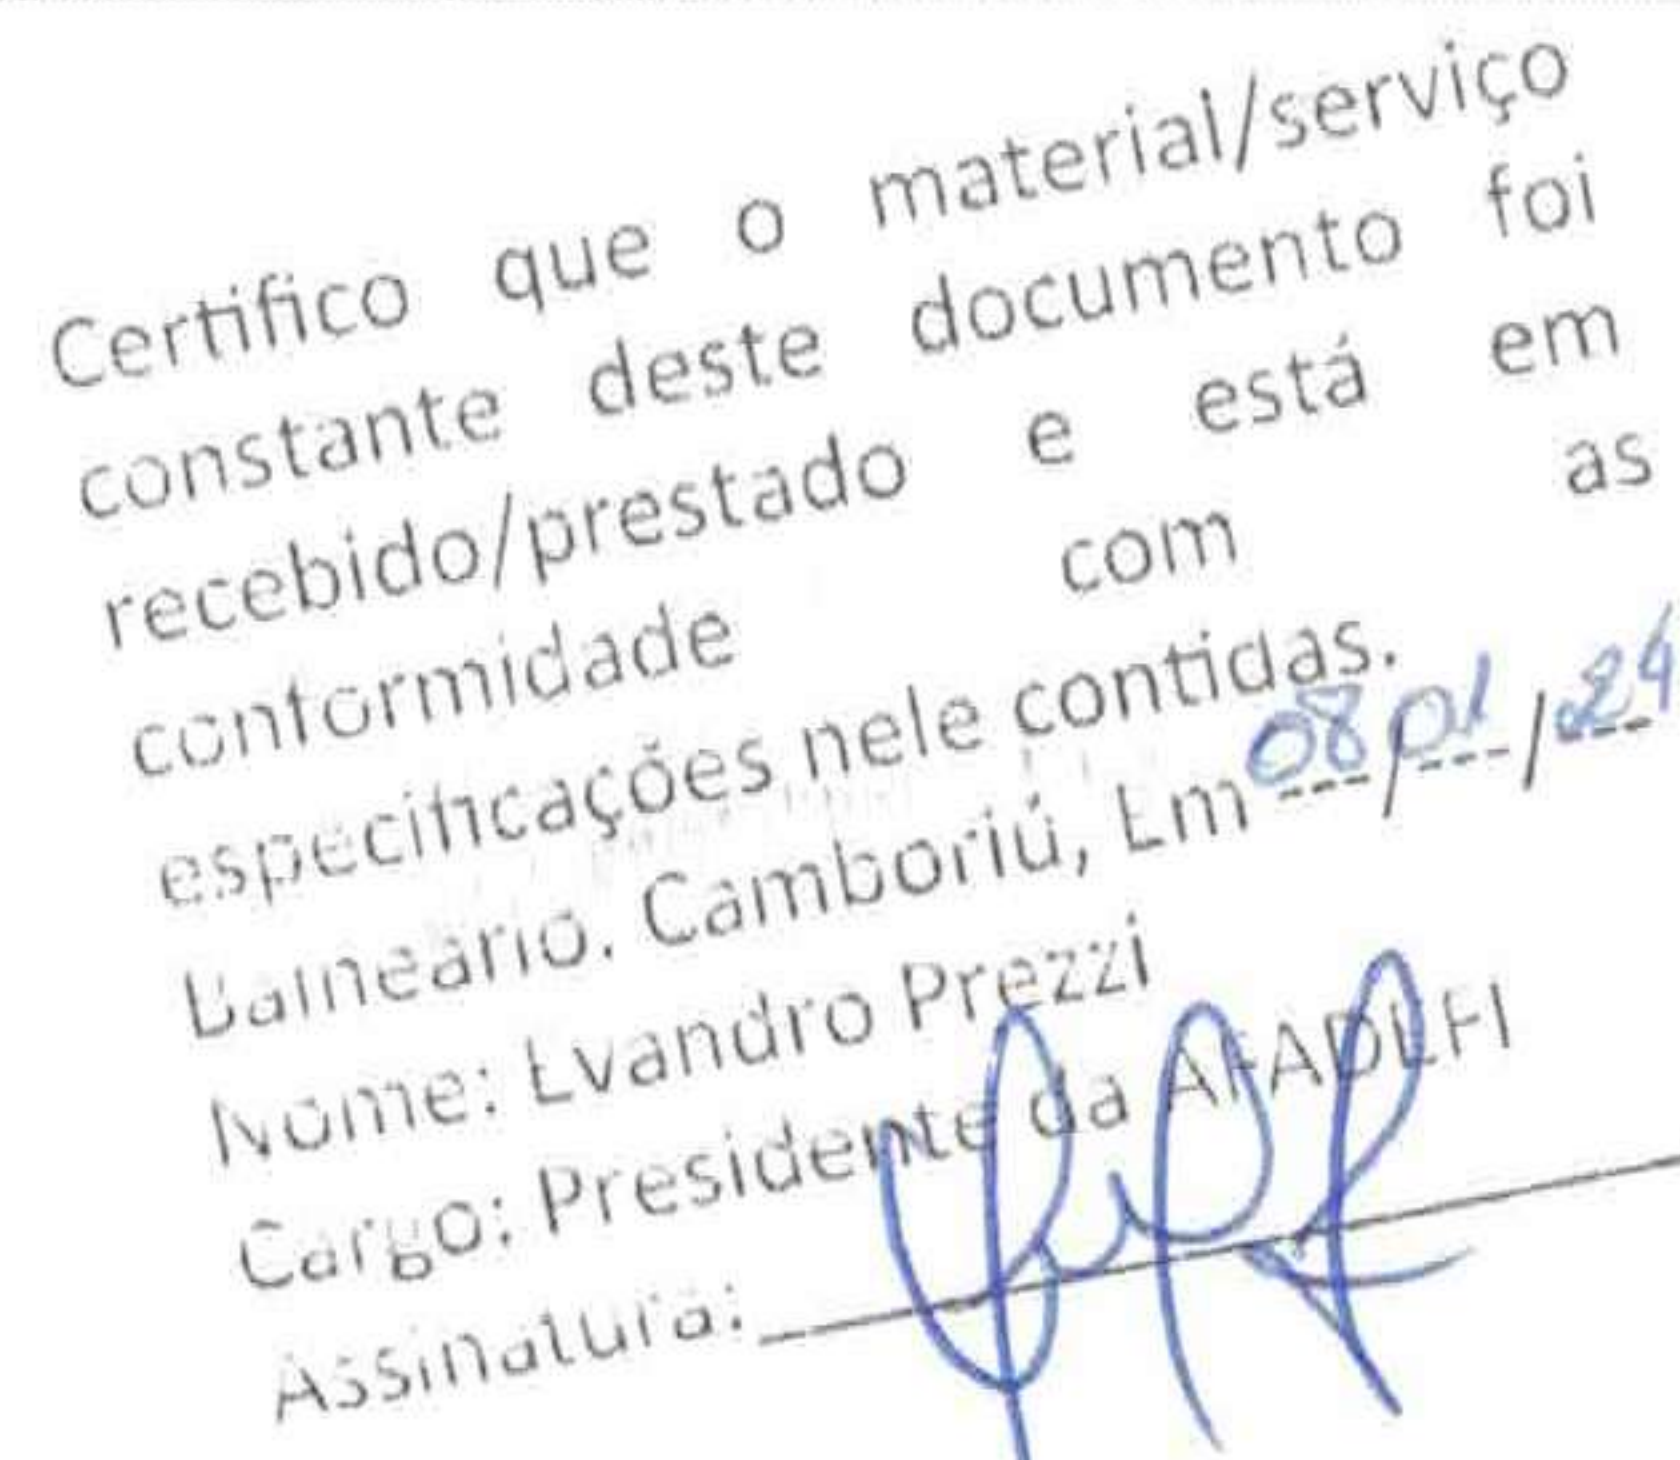 Certifico que o material/serviço
constante deste documento foi
recebido/prestado e está em
conformidade com as
especificações nele contidas.
Balneário. Camboriú, Em 08/01/24
Nome: Evandro Prezzi
Cargo: Presidente da AFADEFI
Assinatura: